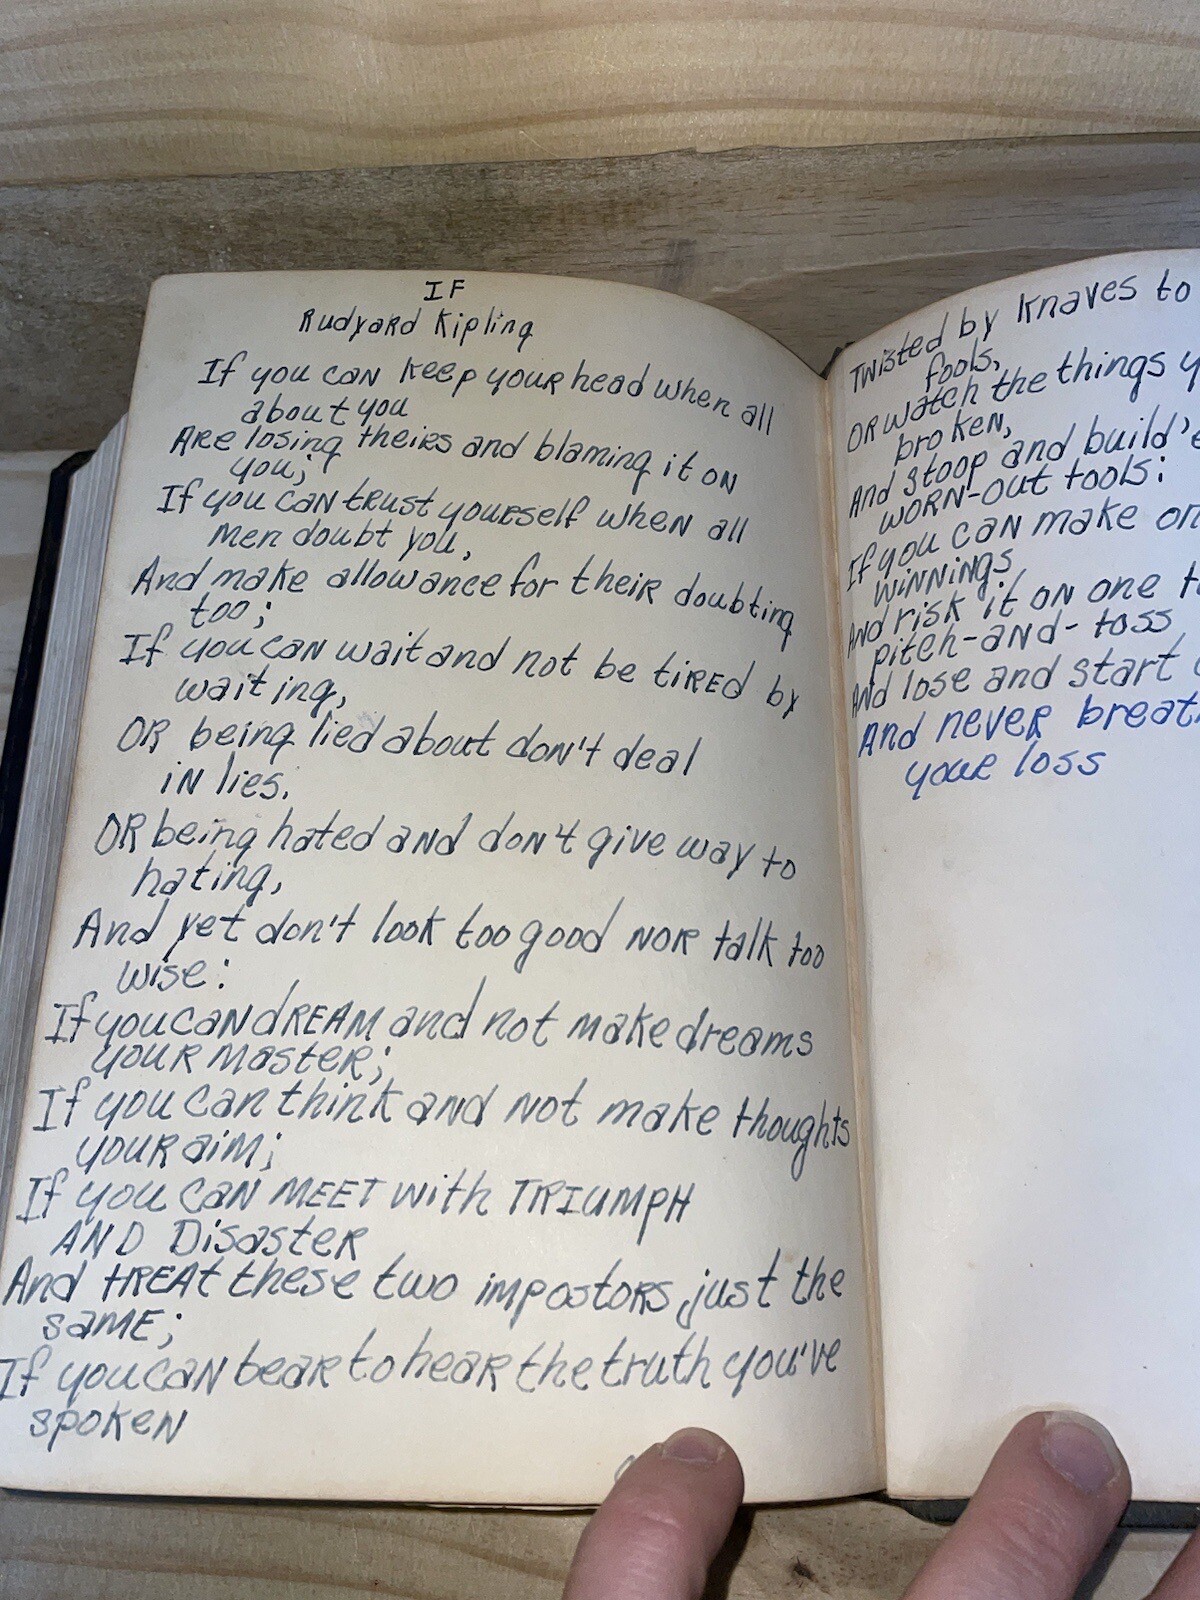 IF
Rudyard Kipling
If you can keep your head when all
about you
Are losing theirs and blaming it on
you;
If you can trust yourself when all
men doubt you,
And make allowance for their doubting
too;
If you can wait and not be tired by
waiting,
OR being lied about don't deal
in lies.
OR being hated and don't give way to
hating,
And yet don't look too good NOR talk too
wise:
If you can dREAM and not make dreams
your Master;
If you can think and not make thoughts
your aim;
If you can MEET with TRIUMPH
AND Disaster
And tREAT these two impostors just the
same;
If you can bear to hear the truth you've
spoken
Twisted by knaves to
fools,
OR watch the things
broken,
And stoop and build'
worn-out tools:
If you can make
winnings
And risk it on one
pitch-and-toss
And lose and start
And never
your loss